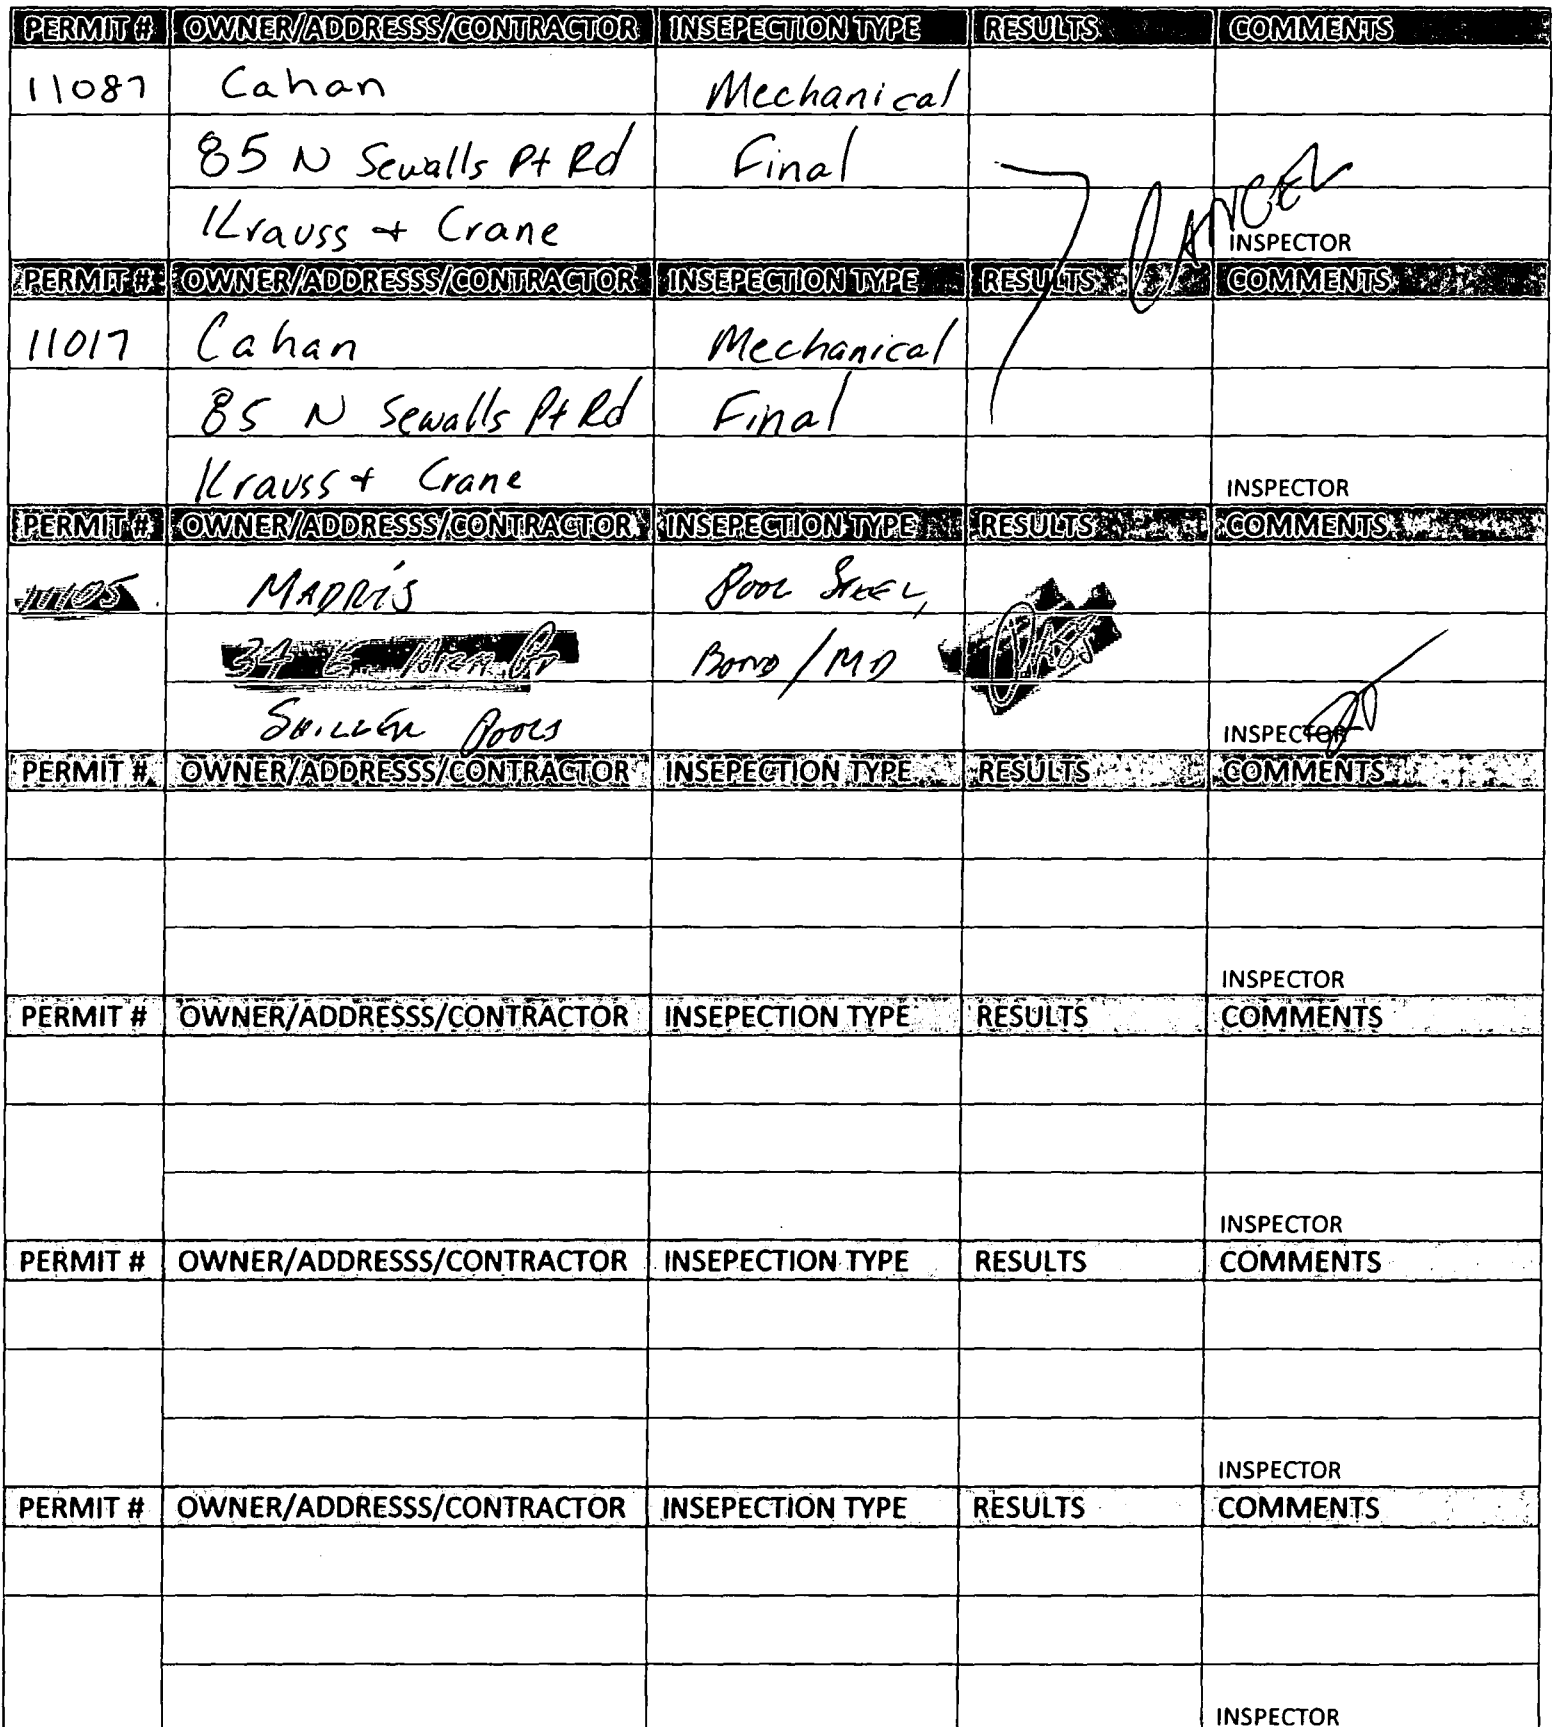 PERMIT # OWNER/ADDRESSS/CONTRACTOR INSEPECTION TYPE RESULTS COMMENTS
11087 Cahan Mechanical
85 N Sewalls Pt Rd Final
CANCEL
Krauss + Crane INSPECTOR
PERMIT # OWNER/ADDRESSS/CONTRACTOR INSEPECTION TYPE RESULTS COMMENTS
11017 Cahan Mechanical
85 N Sewalls Pt Rd Final
Krauss + Crane INSPECTOR
PERMIT # OWNER/ADDRESSS/CONTRACTOR INSEPECTION TYPE RESULTS COMMENTS
POOL STEEL,
34 E. BOND / MD PASS
POOLS INSPECTOR
PERMIT # OWNER/ADDRESSS/CONTRACTOR INSEPECTION TYPE RESULTS COMMENTS
INSPECTOR
PERMIT # OWNER/ADDRESSS/CONTRACTOR INSEPECTION TYPE RESULTS COMMENTS
INSPECTOR
PERMIT # OWNER/ADDRESSS/CONTRACTOR INSEPECTION TYPE RESULTS COMMENTS
INSPECTOR
PERMIT # OWNER/ADDRESSS/CONTRACTOR INSEPECTION TYPE RESULTS COMMENTS
INSPECTOR